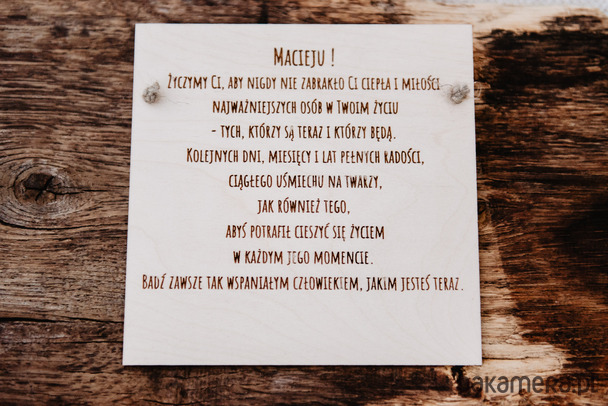 MACIEJU !
ŻYCZYMY CI, ABY NIGDY NIE ZABRAKŁO CI CIEPŁA I MIŁOŚCI
NAJWAŻNIEJSZYCH OSÓB W TWOIM ŻYCIU
- TYCH, KTÓRZY SĄ TERAZ I KTÓRZY BĘDĄ.
KOLEJNYCH DNI, MIESIĘCY I LAT PEŁNYCH RADOŚCI,
CIĄGŁEGO UŚMIECHU NA TWARZY,
JAK RÓWNIEŻ TEGO,
ABYŚ POTRAFIŁ CIESZYĆ SIĘ ŻYCIEM
W KAŻDYM JEGO MOMENCIE.
BĄDŹ ZAWSZE TAK WSPANIAŁYM CZŁOWIEKIEM, JAKIM JESTEŚ TERAZ.
akamera.pl